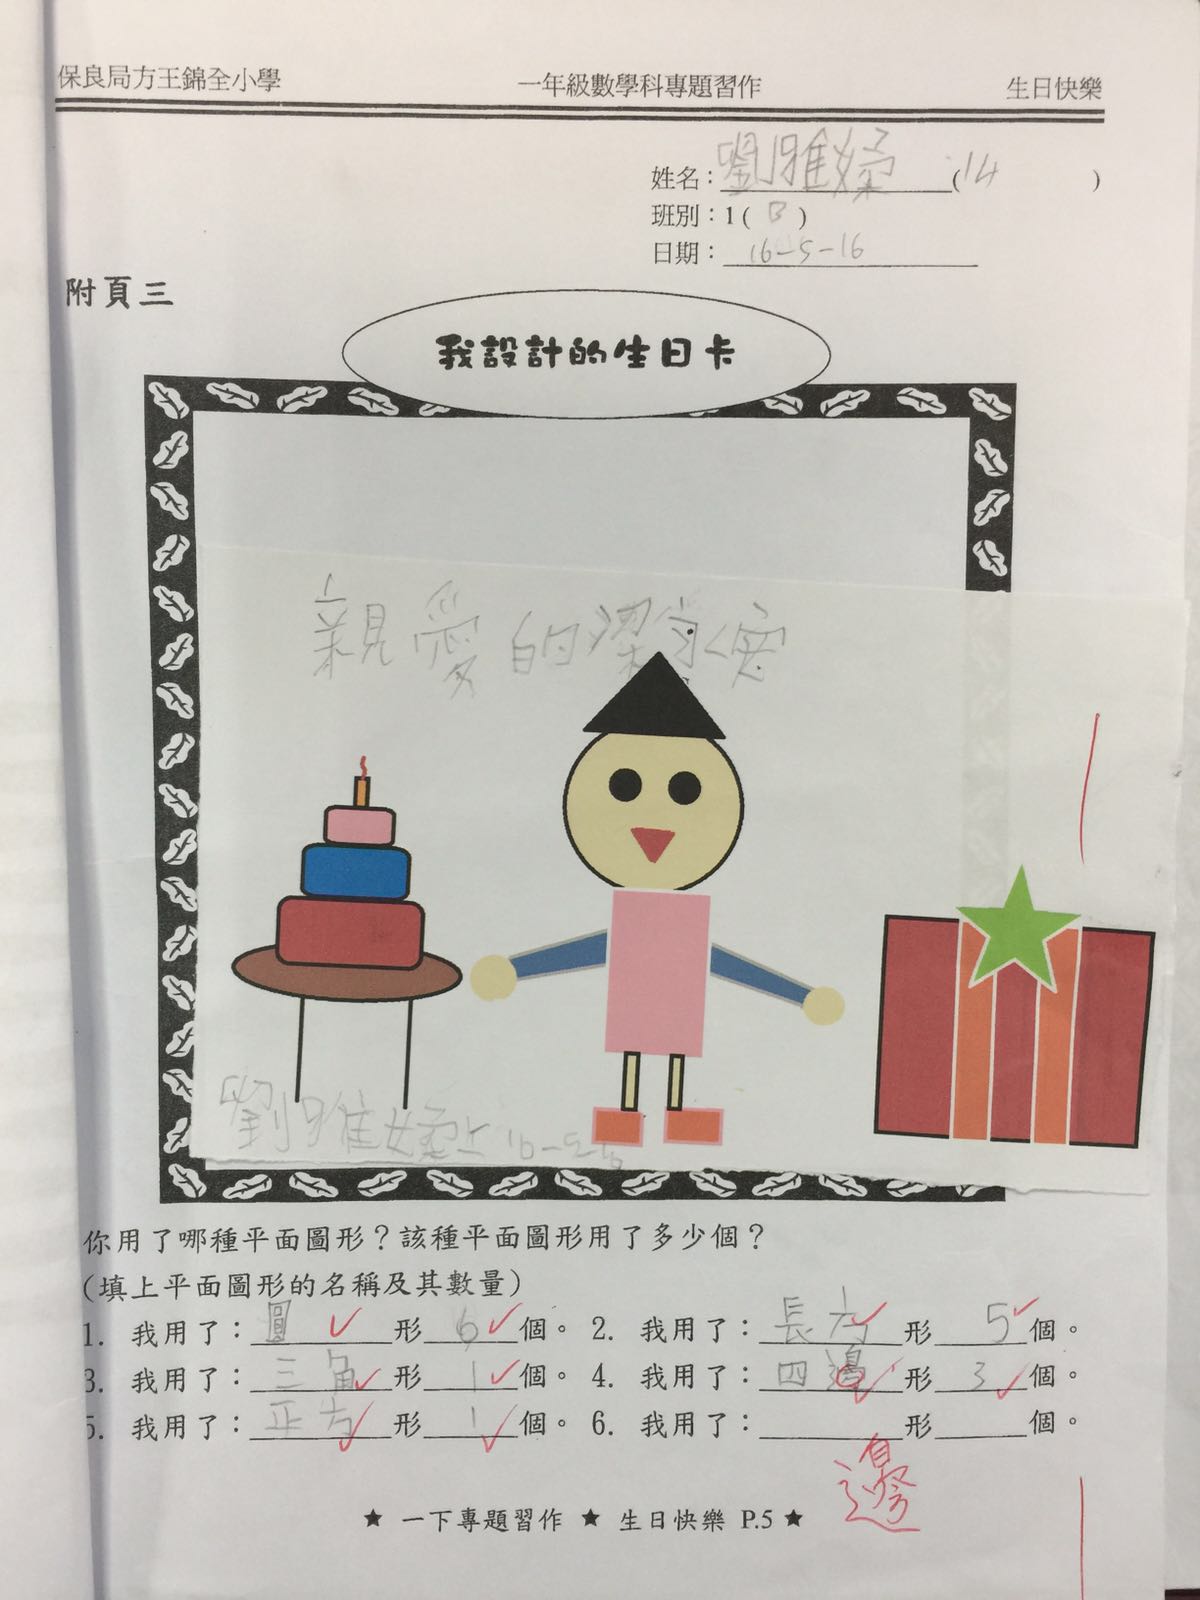 保良局方王錦全小學 一年級數學科專題習作 生日快樂
姓名：劉雅婑 (14 )
班別：1 ( B )
日期： 16-5-16
附頁三
我設計的生日卡
親愛的
劉雅 上 16-5-16
你用了哪種平面圖形？該種平面圖形用了多少個？
(填上平面圖形的名稱及其數量)
1. 我用了：圓形 6 個。 2. 我用了：長方形 5 個。
3. 我用了：三角形 1 個。 4. 我用了：四邊形 3 個。
5. 我用了：正方形 1 個。 6. 我用了：形 個。
邊
★ 一下專題習作 ★ 生日快樂 P.5 ★